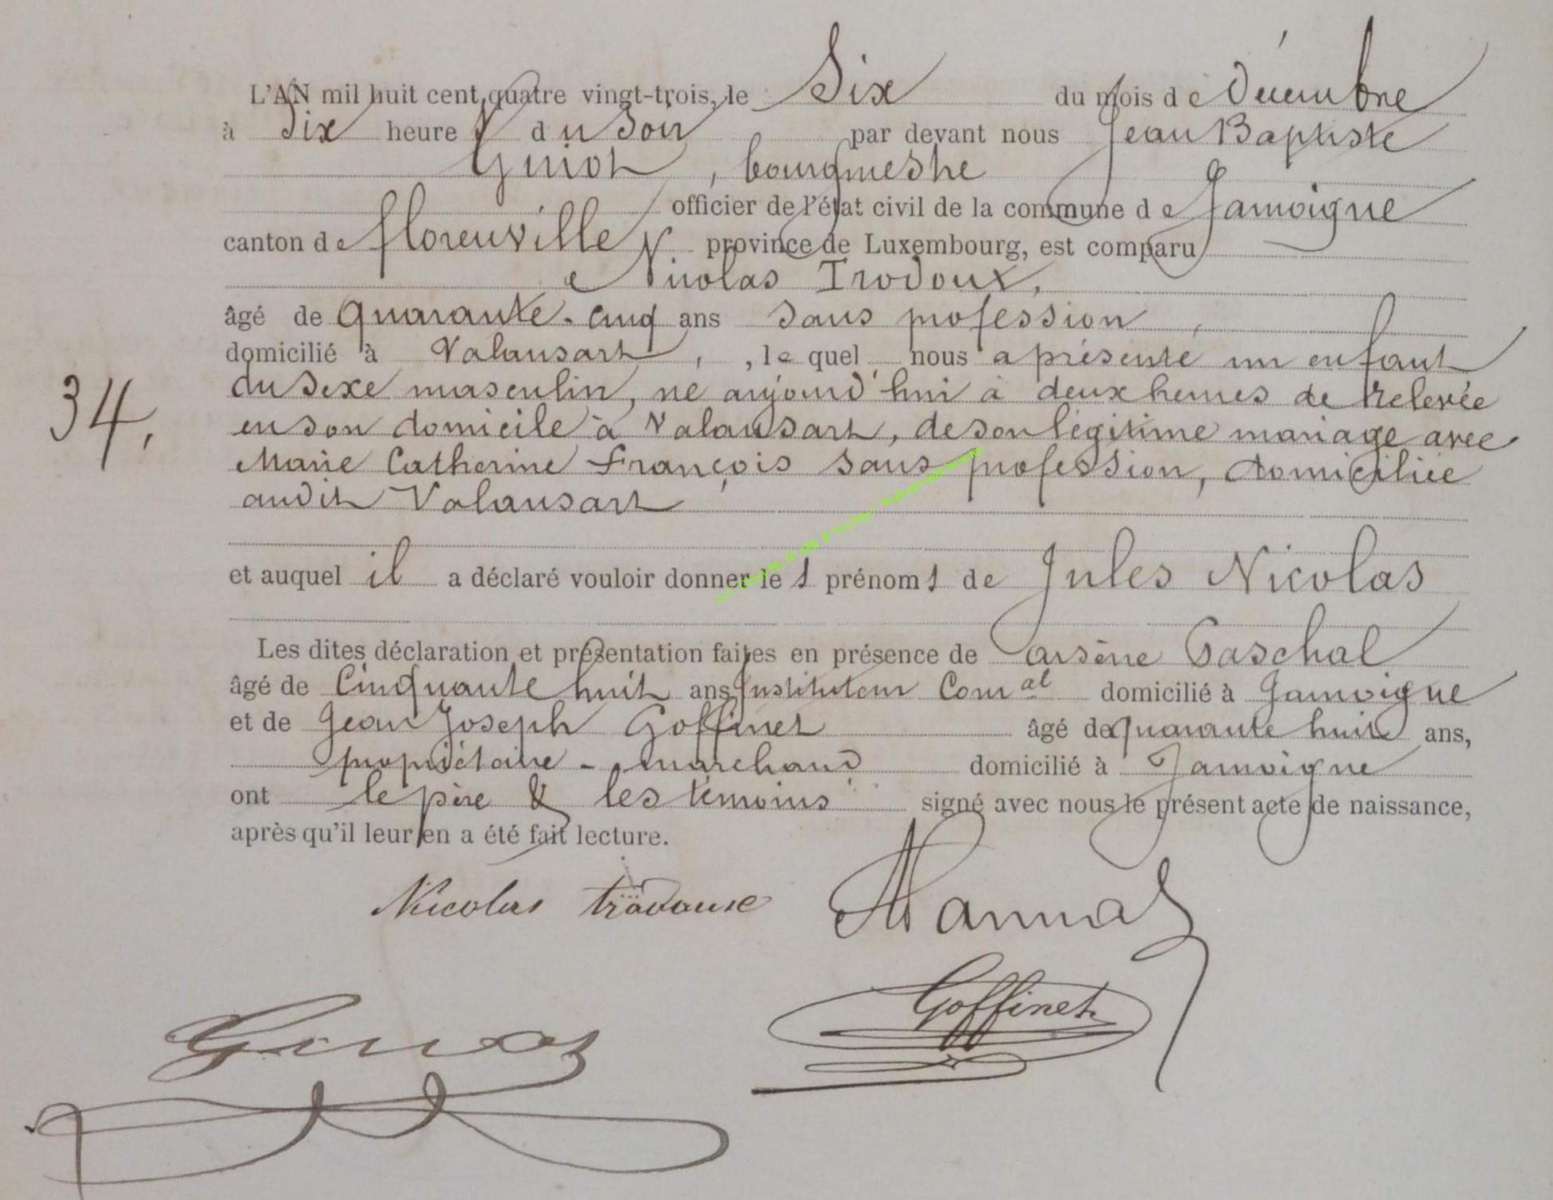 L'AN mil huit cent quatre vingt-trois, le Six du mois de Décembre
à Six heures du Soir par devant nous Jean Baptiste
Guiot, bourgmestre
officier de l'état civil de la commune de Jamoigne
canton de florenville province de Luxembourg, est comparu
Nicolas Trodoux,
âgé de Quarante-cinq ans sans profession,
domicilié à Valansart, , le quel nous a présenté un enfant
du sexe masculin, né aujourd'hui à deux heures de Relevée
34. en son domicile à Valansart, de son légitime mariage avec
Marie Catherine François sans profession, domiciliée
audit Valansart
et auquel il a déclaré vouloir donner les prénoms de Jules Nicolas
Les dites déclaration et présentation faites en présence de arsène Paschal
âgé de Cinquante huit ans Instituteur Com al domicilié à Jamoigne
et de Jean Joseph Goffinet âgé de quarante huit ans,
propriétaire - marchand domicilié à Jamoigne
ont le père & les témoins signé avec nous le présent acte de naissance,
après qu'il leur en a été fait lecture.
Nicolas trodoux
Goffinet